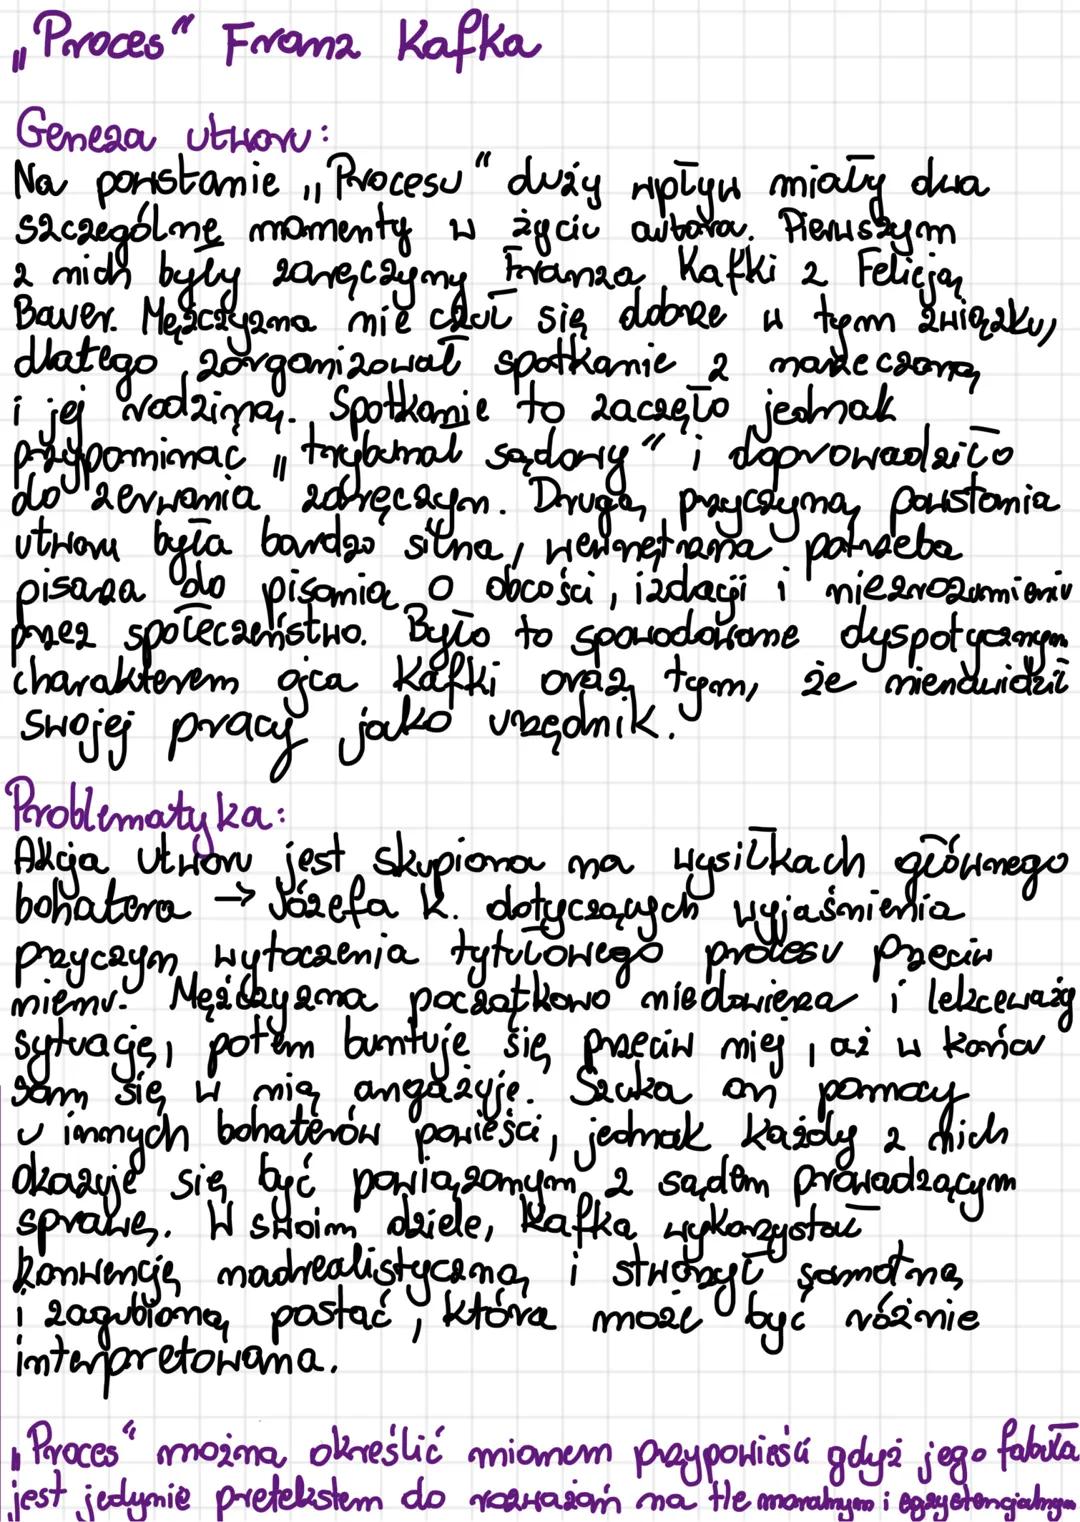 „Proces" Franz Kafka
Geneza utworu:
Na powstanie „Procesu" duży wpływ miały dwa
szczególne momenty w życiu autora. Pierwszym
z nich były zaręczyny Franza Kafki z Felicją
Bauer. Mężczyzna nie czuł się dobrze w tym związku,
dlatego zorganizował spotkanie z narzeczoną
i jej rodziną. Spotkanie to zaczęło jednak
przypominać „trybunał sądowy" i doprowadziło
do zerwania zaręczyn. Drugą przyczyną powstania
utworu była bardzo silna, wewnętrzna potrzeba
pisarza do pisania o obcości, izolacji i niezrozumieniu
przez społeczeństwo. Było to spowodowane dyspotycznym
charakterem ojca Kafki oraz tym, że nienawidził
swojej pracy jako urzędnik.
Problematyka:
Akcja utworu jest skupiona na wysiłkach głównego
bohatera → Józefa K. dotyczących wyjaśnienia
przyczyn wytoczenia tytułowego procesu przeciw
niemu. Mężczyzna początkowo niedowierza i lekceważy
sytuację, potem buntuje się przeciw niej, aż w końcu
sam się w nią angażuje. Szuka on pomocy
u innych bohaterów powieści, jednak każdy z nich
okazuje się być powiązanym z sądem prowadzącym
sprawę. W swoim dziele, Kafka wykorzystał
konwencję nadrealistyczną i stworzył samotną
i zagubioną postać, która może być różnie
interpretowana.
„Proces" można określić mianem przypowieści gdyż jego fabuła
jest jedynie pretekstem do rozważań na tle moralnym i egzystencjalnym